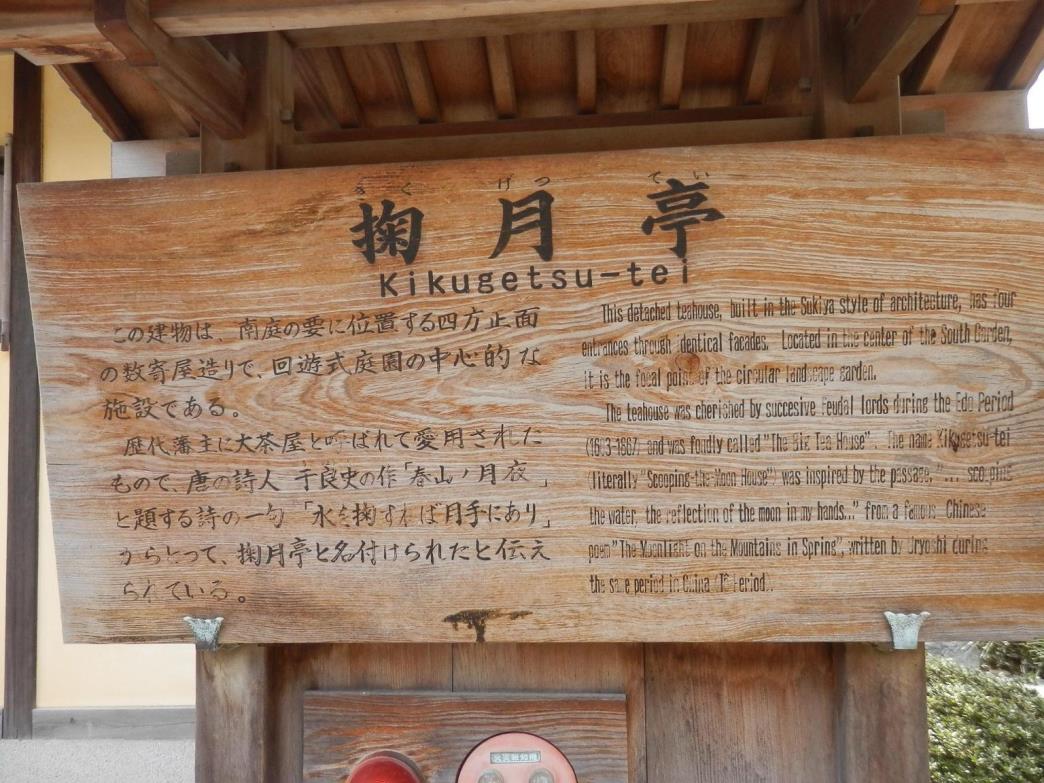 きくげつてい
掬月亭
Kikugetsu-tei
この建物は、南庭の要に位置する四方正面
の数寄屋造りで、回遊式庭園の中心的な
施設である。
歴代藩主に大茶屋と呼ばれて愛用された
もので、唐の詩人 于良史の作「春山ノ月夜」
と題する詩の一句「水を掬すれば月手にあり」
からとって、掬月亭と名付けられたと伝え
られている。
This detached teahouse, built in the Sukiya style of architecture, has four
entrances through identical facades. Located in the center of the South Garden,
it is the focal point of the circular landscape garden.
The teahouse was cherished by succesive feudal lords during the Edo Period
(1603-1867) and was fondly called "The Big Tea House". The name Kikugetsu-tei
(literally "Scooping-the-Moon House") was inspired by the passage, "... scooping
the water, the reflection of the moon in my hands..." from a famous Chinese
poem "The Moonlight on the Mountains in Spring", written by Uryoshi during
the same period in China Period).
火災報知機